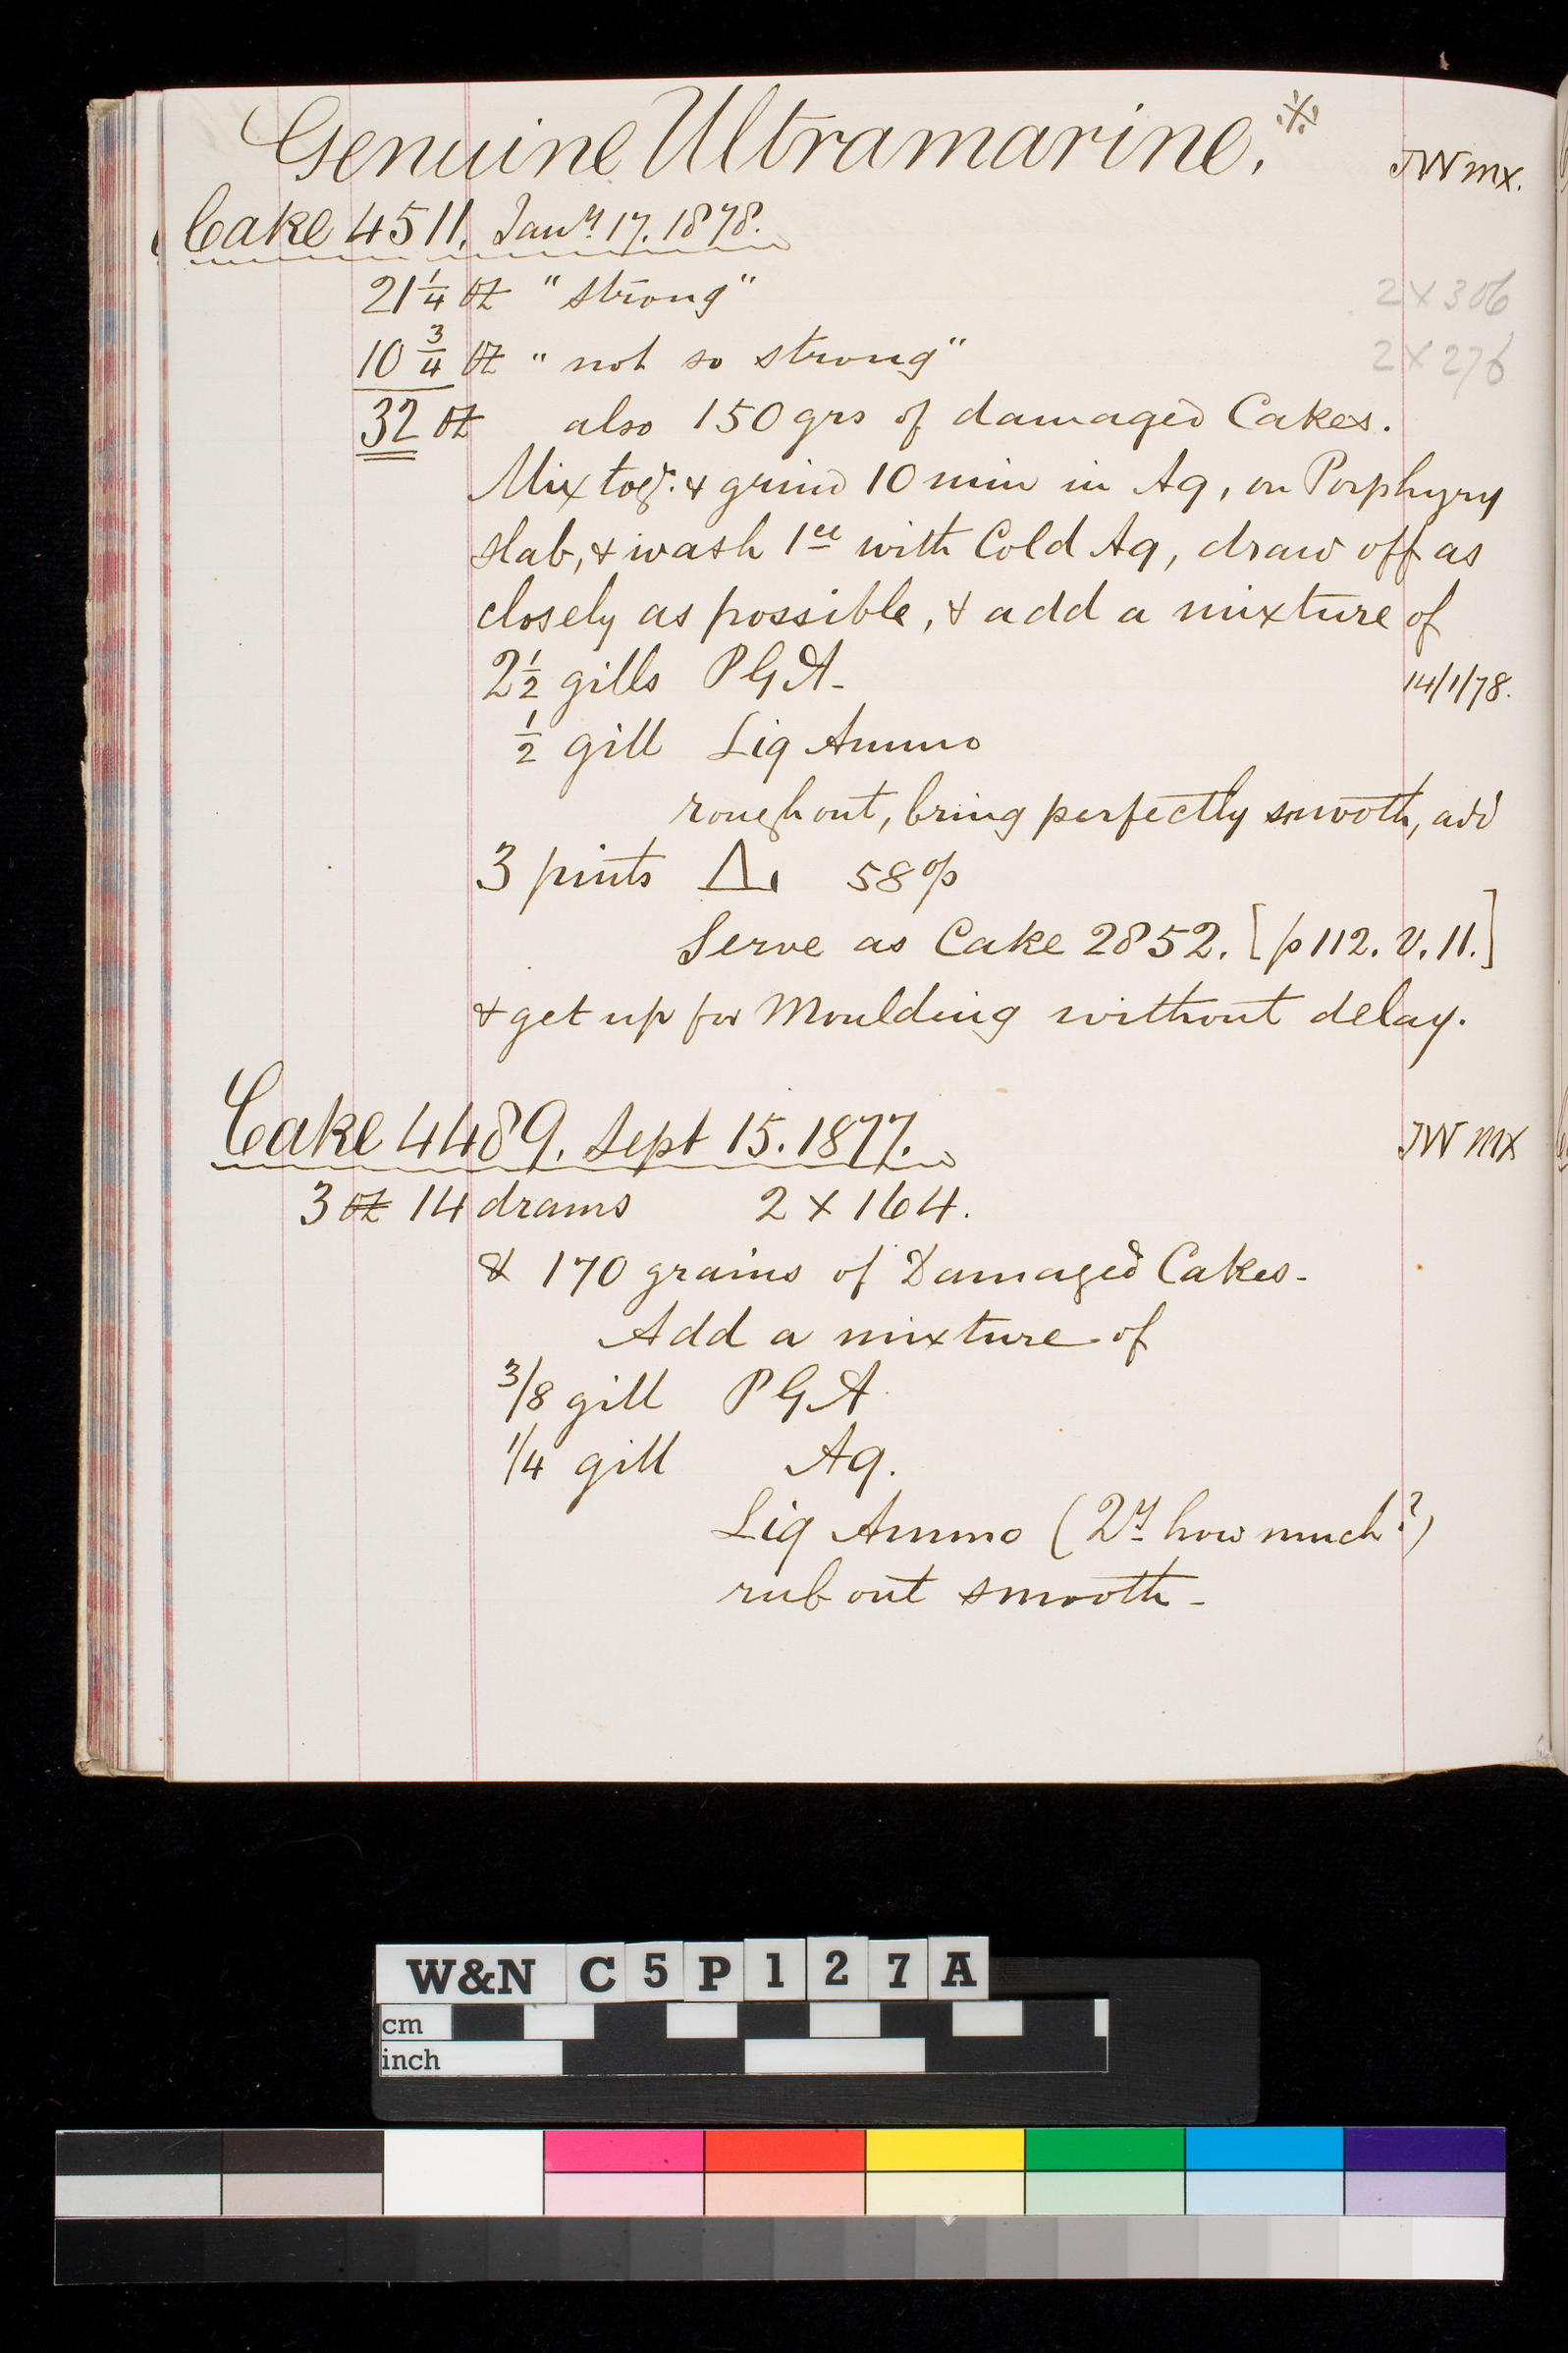 Genuine Ultramarine.
JW mx.
Cake 4511. Jany 17. 1878.
21 1/4 oz "strong"
2 X 306
10 3/4 oz "not so strong"
2 X 276
32 oz also 150 grs of damaged Cakes.
Mix togr. & grind 10 min in Aq, on Porphyry
slab, & wash 1ce with Cold Aq, draw off as
closely as possible, & add a mixture of
2 1/2 gills PGA-
14/1/78.
1/2 gill Liq Ammo
rough out, bring perfectly smooth, add
3 pints Δ. 58 o/p
Serve as Cake 2852. [p 112. V. 11.]
& get up for Moulding without delay.
Cake 4489. Sept 15. 1877.
JW MX
3 oz 14 drams 2 X 164.
& 170 grains of Damaged Cakes-
Add a mixture of
3/8 gill PGA
1/4 gill Aq.
Liq Ammo (Qy how much?)
rub out smooth-
W&N C5P127A
cm
inch